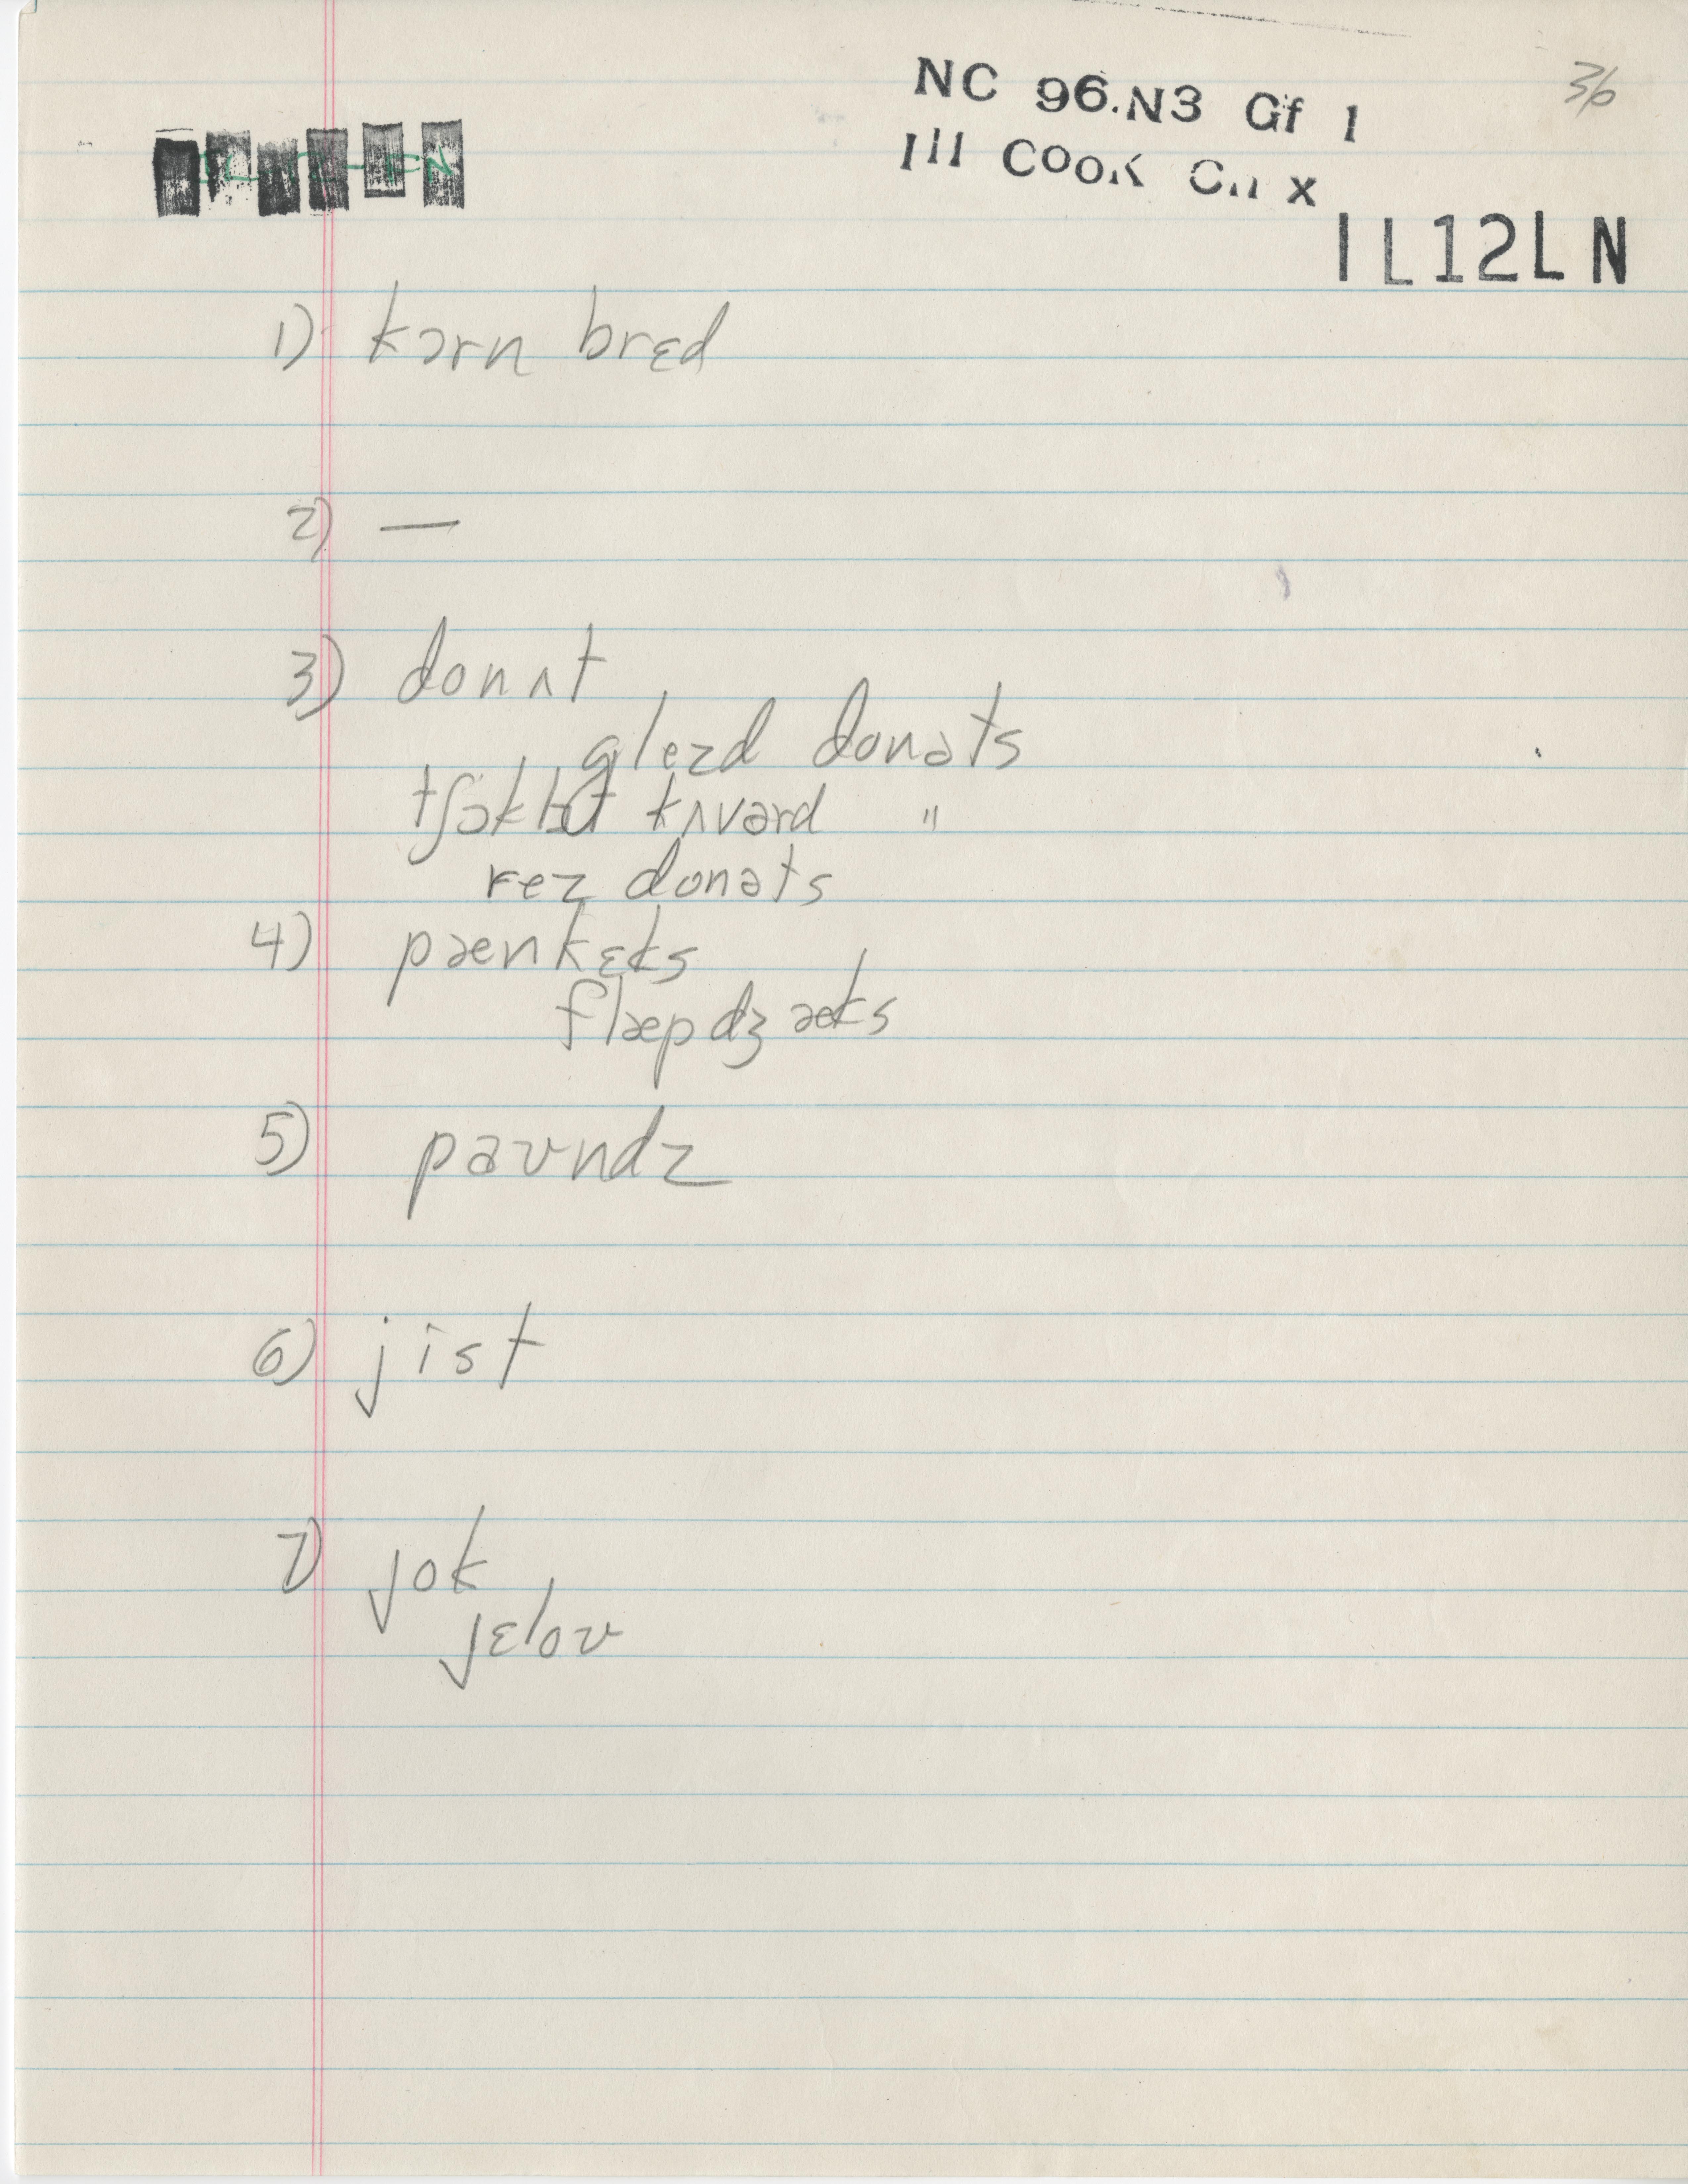 36
NC 96.N3 Gf 1
Ill Cook Ch x
IL12LN
1) kɔrn brɛd
2) —
3) donʌt
glezd donəts
kʌvərd "
rez donəts
4) pænkɛks
flæpdʒæks
5) paʊndz
6) jist
7) jok
jɛloʊ